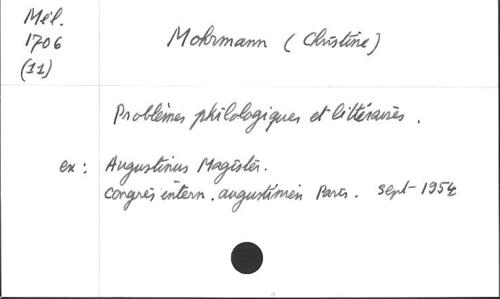 Mél.
1706
(11)
Mohrmann (Christine)
Problèmes philologiques et littéraires.
ex: Augustinus Magister.
Congrès intern. augustinien Paris. Sept-1954